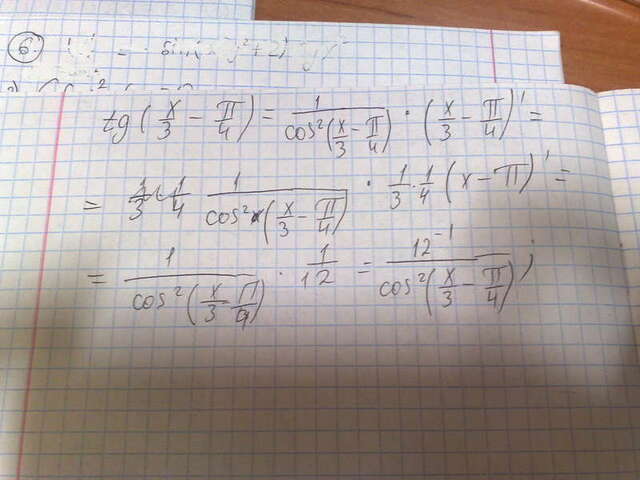 6.
tg(x/3 − π/4) = 1/cos²(x/3 − π/4) · (x/3 − π/4)' =
= 1/cos²(x/3 − π/4) · 1/3 · 1/4 (x − π)' =
= 1/cos²(x/3 − π/4) · 1/12 = 12⁻¹/cos²(x/3 − π/4) ;